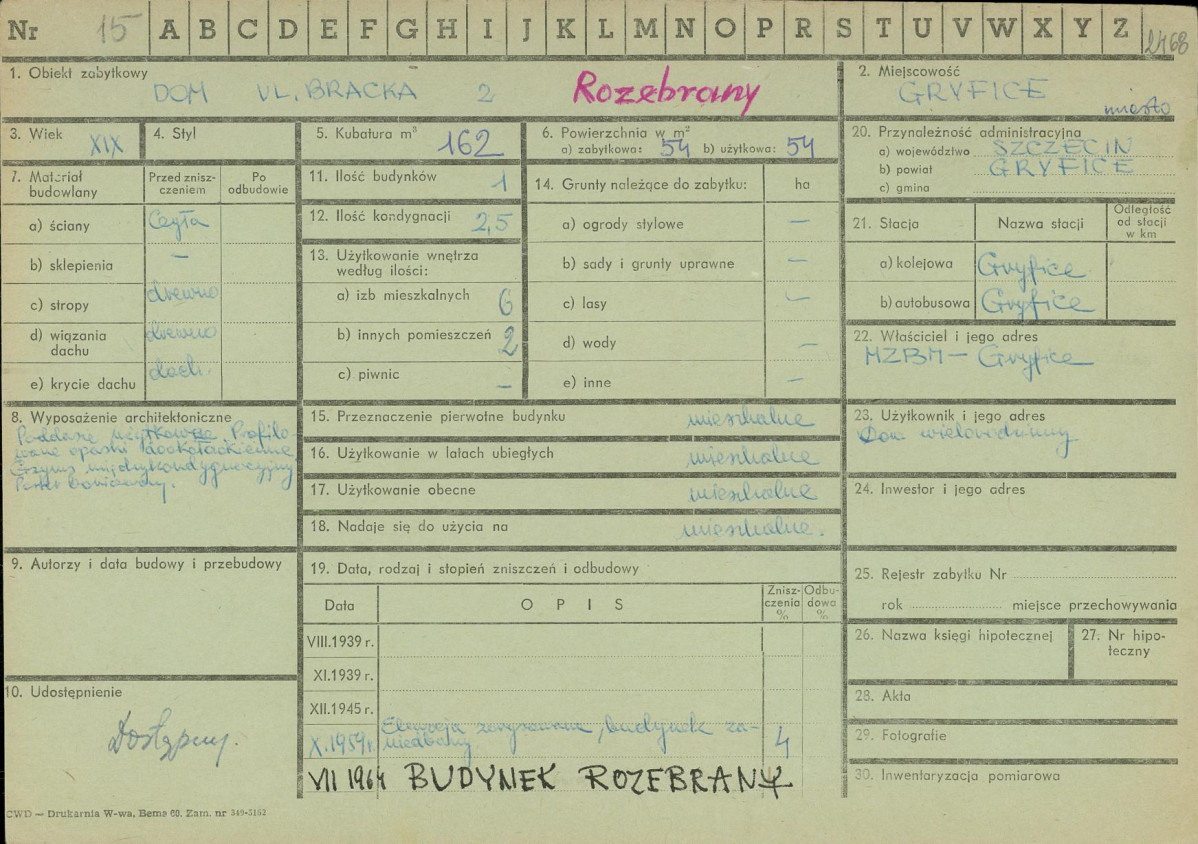 Nr 15 A B C D E F G H I J K L M N O P R S T U V W X Y Z 2468
1. Obiekt zabytkowy
DOM UL. BRACKA 2 Rozebrany
2. Miejscowość
GRYFICE
miasto
3. Wiek XIX
4. Styl
5. Kubatura m³ 162
6. Powierzchnia w m²
a) zabytkowa: 54 b) użytkowa: 54
20. Przynależność administracyjna
a) województwo SZCZECIN
b) powiat GRYFICE
c) gmina
7. Materiał budowlany
Przed zniszczeniem
Po odbudowie
a) ściany Cegła
b) sklepienia –
c) stropy drewno
d) wiązania dachu drewno
e) krycie dachu dach.
11. Ilość budynków 1
12. Ilość kondygnacji 2,5
13. Użytkowanie wnętrza
według ilości:
a) izb mieszkalnych 6
b) innych pomieszczeń 2
c) piwnic –
14. Grunty należące do zabytku: ha
a) ogrody stylowe –
b) sady i grunty uprawne –
c) lasy –
d) wody –
e) inne –
21. Stacja Nazwa stacji Odległość od stacji w km
a) kolejowa Gryfice
b) autobusowa Gryfice
22. Właściciel i jego adres
MZBM – Gryfice
8. Wyposażenie architektoniczne
Poddasze użytkowe. Profilo
wane opaski dookołaokienne
Gzyms międzykondygnacyjny
Parter boniowany.
15. Przeznaczenie pierwotne budynku mieszkalne
16. Użytkowanie w latach ubiegłych mieszkalne
17. Użytkowanie obecne mieszkalne
18. Nadaje się do użycia na mieszkalne.
23. Użytkownik i jego adres
Dom wielorodzinny
24. Inwestor i jego adres
9. Autorzy i data budowy i przebudowy
10. Udostępnienie
Dostępny.
19. Data, rodzaj i stopień zniszczeń i odbudowy
Data OPIS Zniszczenia % Odbudowa %
VIII.1939 r.
XI.1939 r.
XII.1945 r.
X.1959 r. Elewacja zarysowana, budynek za-
niedbany. 4
VII 1964 BUDYNEK ROZEBRANY
25. Rejestr zabytku Nr
rok miejsce przechowywania
26. Nazwa księgi hipotecznej
27. Nr hipo-
teczny
28. Akta
29. Fotografie
30. Inwentaryzacja pomiarowa
CWD — Drukarnia W-wa, Bema 60. Zam. nr 349-5162